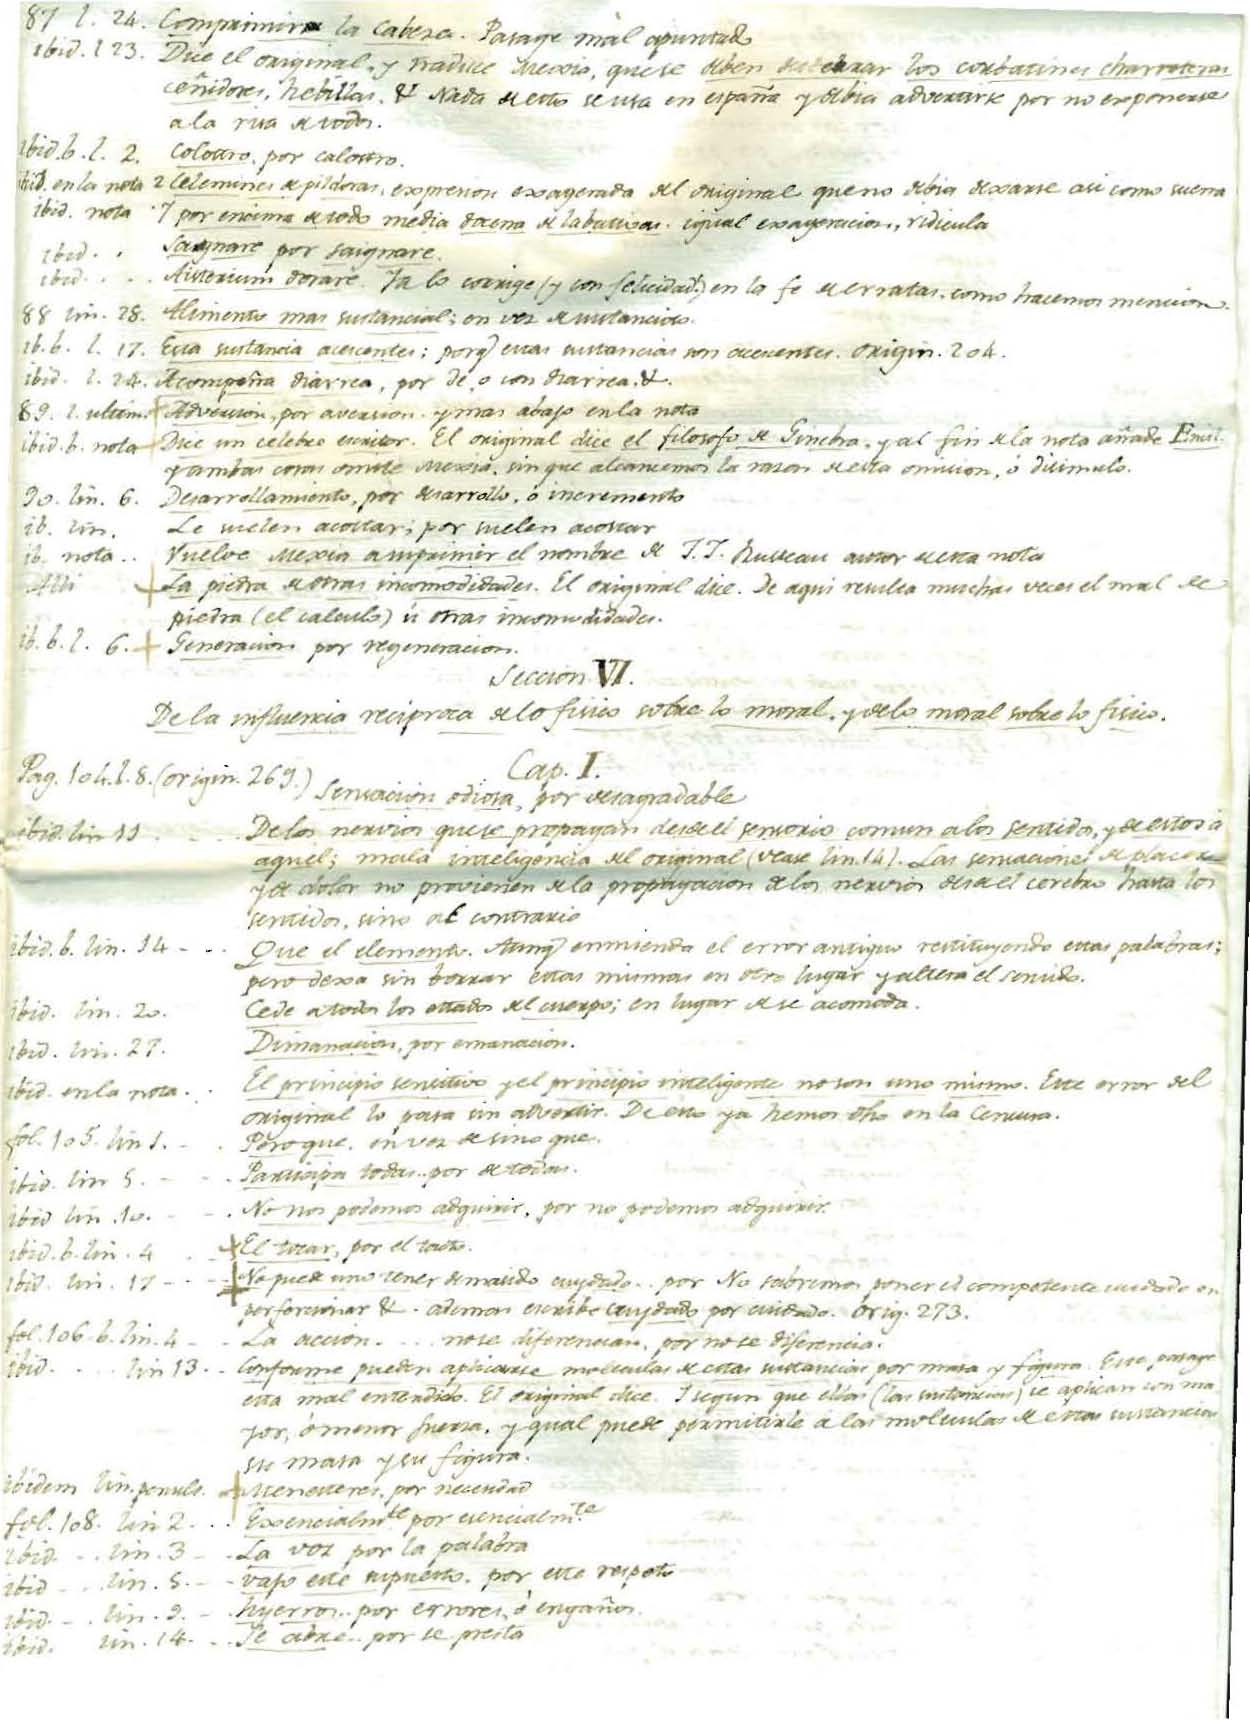 87 l. 24. Comprimir la cabeza. Pasage mal apuntad
ibid. l 23. Dice el original, y traduce Mexia, que se deben desterrar los corbatines charreteras
ceñidores, hebillas, & Nada de esto se usa en españa y debia advertirse por no exponerse
a la risa de todos.
ibid. b. l. 2. Colostro, por calostro.
ibid. en la nota 2 Celemines de pildoras, expresion exagerada del original que no debia dexarse asi como suena
ibid. nota Y por encima de todo media docena de labativas. igual exageracion, ridicula
ibid. . Saignare por saignare.
ibid. . . . Misterium dorare. Ya lo corrige (y con felicidad!) en la fe de erratas. como hacemos mencion.
88 lin. 28. Alimento mas sustancial; en vez de sustancioso.
ib. b. l. 17. Esta sustancia acescentes; porq̃ estas sustancias son acescentes. origin. 204.
ibid. l. 24. Acompaña diarrea, por de, o con diarrea. &.
89. l. ultim. Adversion, por aversion. y mas abajo en la nota
ibid. b. nota Dice un celebre escritor. El original dice el filosofo de Ginebra. y al fin de la nota añade Emil.
y ambas cosas omite Mexia, sin que alcancemos la razon de esta omision, o disimulo.
90. lin. 6. Desarrollamiento, por desarrollo, o incremento
ib. lin. Le suelen acostar; por suelen acostar
ib. nota .. Vuelve Mexia a suprimir el nombre de J. J. Russeau autor de esta nota
Alli + La piedra de otras incomodidades. El original dice. De aqui resulta muchas veces el mal de
piedra (el calculo) ú otras incomodidades.
ib. b. l. 6. + Generacion por regeneracion.
Seccion VI.
De la influencia reciproca de lo fisico sobre lo moral, y de lo moral sobre lo fisico.
Cap. I.
Pag. 104. l. 8. (origin. 269.) Sensacion odiosa, por desagradable
ibid. lin 11 . . . De los nervios que se propagan desde el sensorio comun a los sentidos, y de estos á
aquel; mala inteligencia del original (vease lin. 14). Las sensaciones de placer
y de dolor no provienen de la propagacion de los nervios desde el cerebro hasta los
sentidos, sino al contrario
ibid. b. lin. 14 - .. Que el elemento. Aunq̃ enmienda el error antiguo restituyendo estas palabras;
pero dexa sin borrar estas mismas en otro lugar y altera el sentido.
ibid. lin. 20. Cede a todos los estados del cuerpo; en lugar de se acomoda.
ibid. lin. 27. Dimanacion, por emanacion.
ibid. en la nota. . El principio sensitivo y el principio inteligente no son uno mismo. Este error del
original lo pasa sin advertir. De esto ya hemos dho en la Censura.
fol. 105. lin 1. - . Pero que. en vez de sino que.
ibid. lin 5. - - . Participa todas.. por de todas.
ibid lin. 10. - . No nos podemos adquirir, por no podemos adquirir.
ibid. b. lin. 4 . . + El tocar, por el tacto.
ibid. lin. 17 - - - + No puede uno tener demasiado cuydado .. por No sabremos poner el competente cuidado en
perfeccionar & . ademas escribe cuydado por cuidado. Orig. 273.
fol. 106. b. lin. 4 - - La accion. . . . no se diferencian, por no se diferencia.
ibid. . . . lin 13. - Conforme pueden aplicarse moleculas de estas sustancias por masa y figura. Este pasage
esta mal entendido. El original dice. Y segun que ellas (las sustancias) se aplican con ma
yor, o menor fuerza, y qual puede permitirle a las moleculas de estas sustancias
su masa y su figura.
ibidem lin. penult. + Menesteres, por necesidad
fol. 108. lin 2. . . Exencialmte por esencialmte
ibid. . . lin. 3 - - La voz por la palabra
ibid - . lin. 5. - - vajo este supuesto. por este respeto
ibid. - . lin. 9. - . hyerros.. por errores, ó engaños.
ibid. lin. 14. - . Se abre.. por se presta